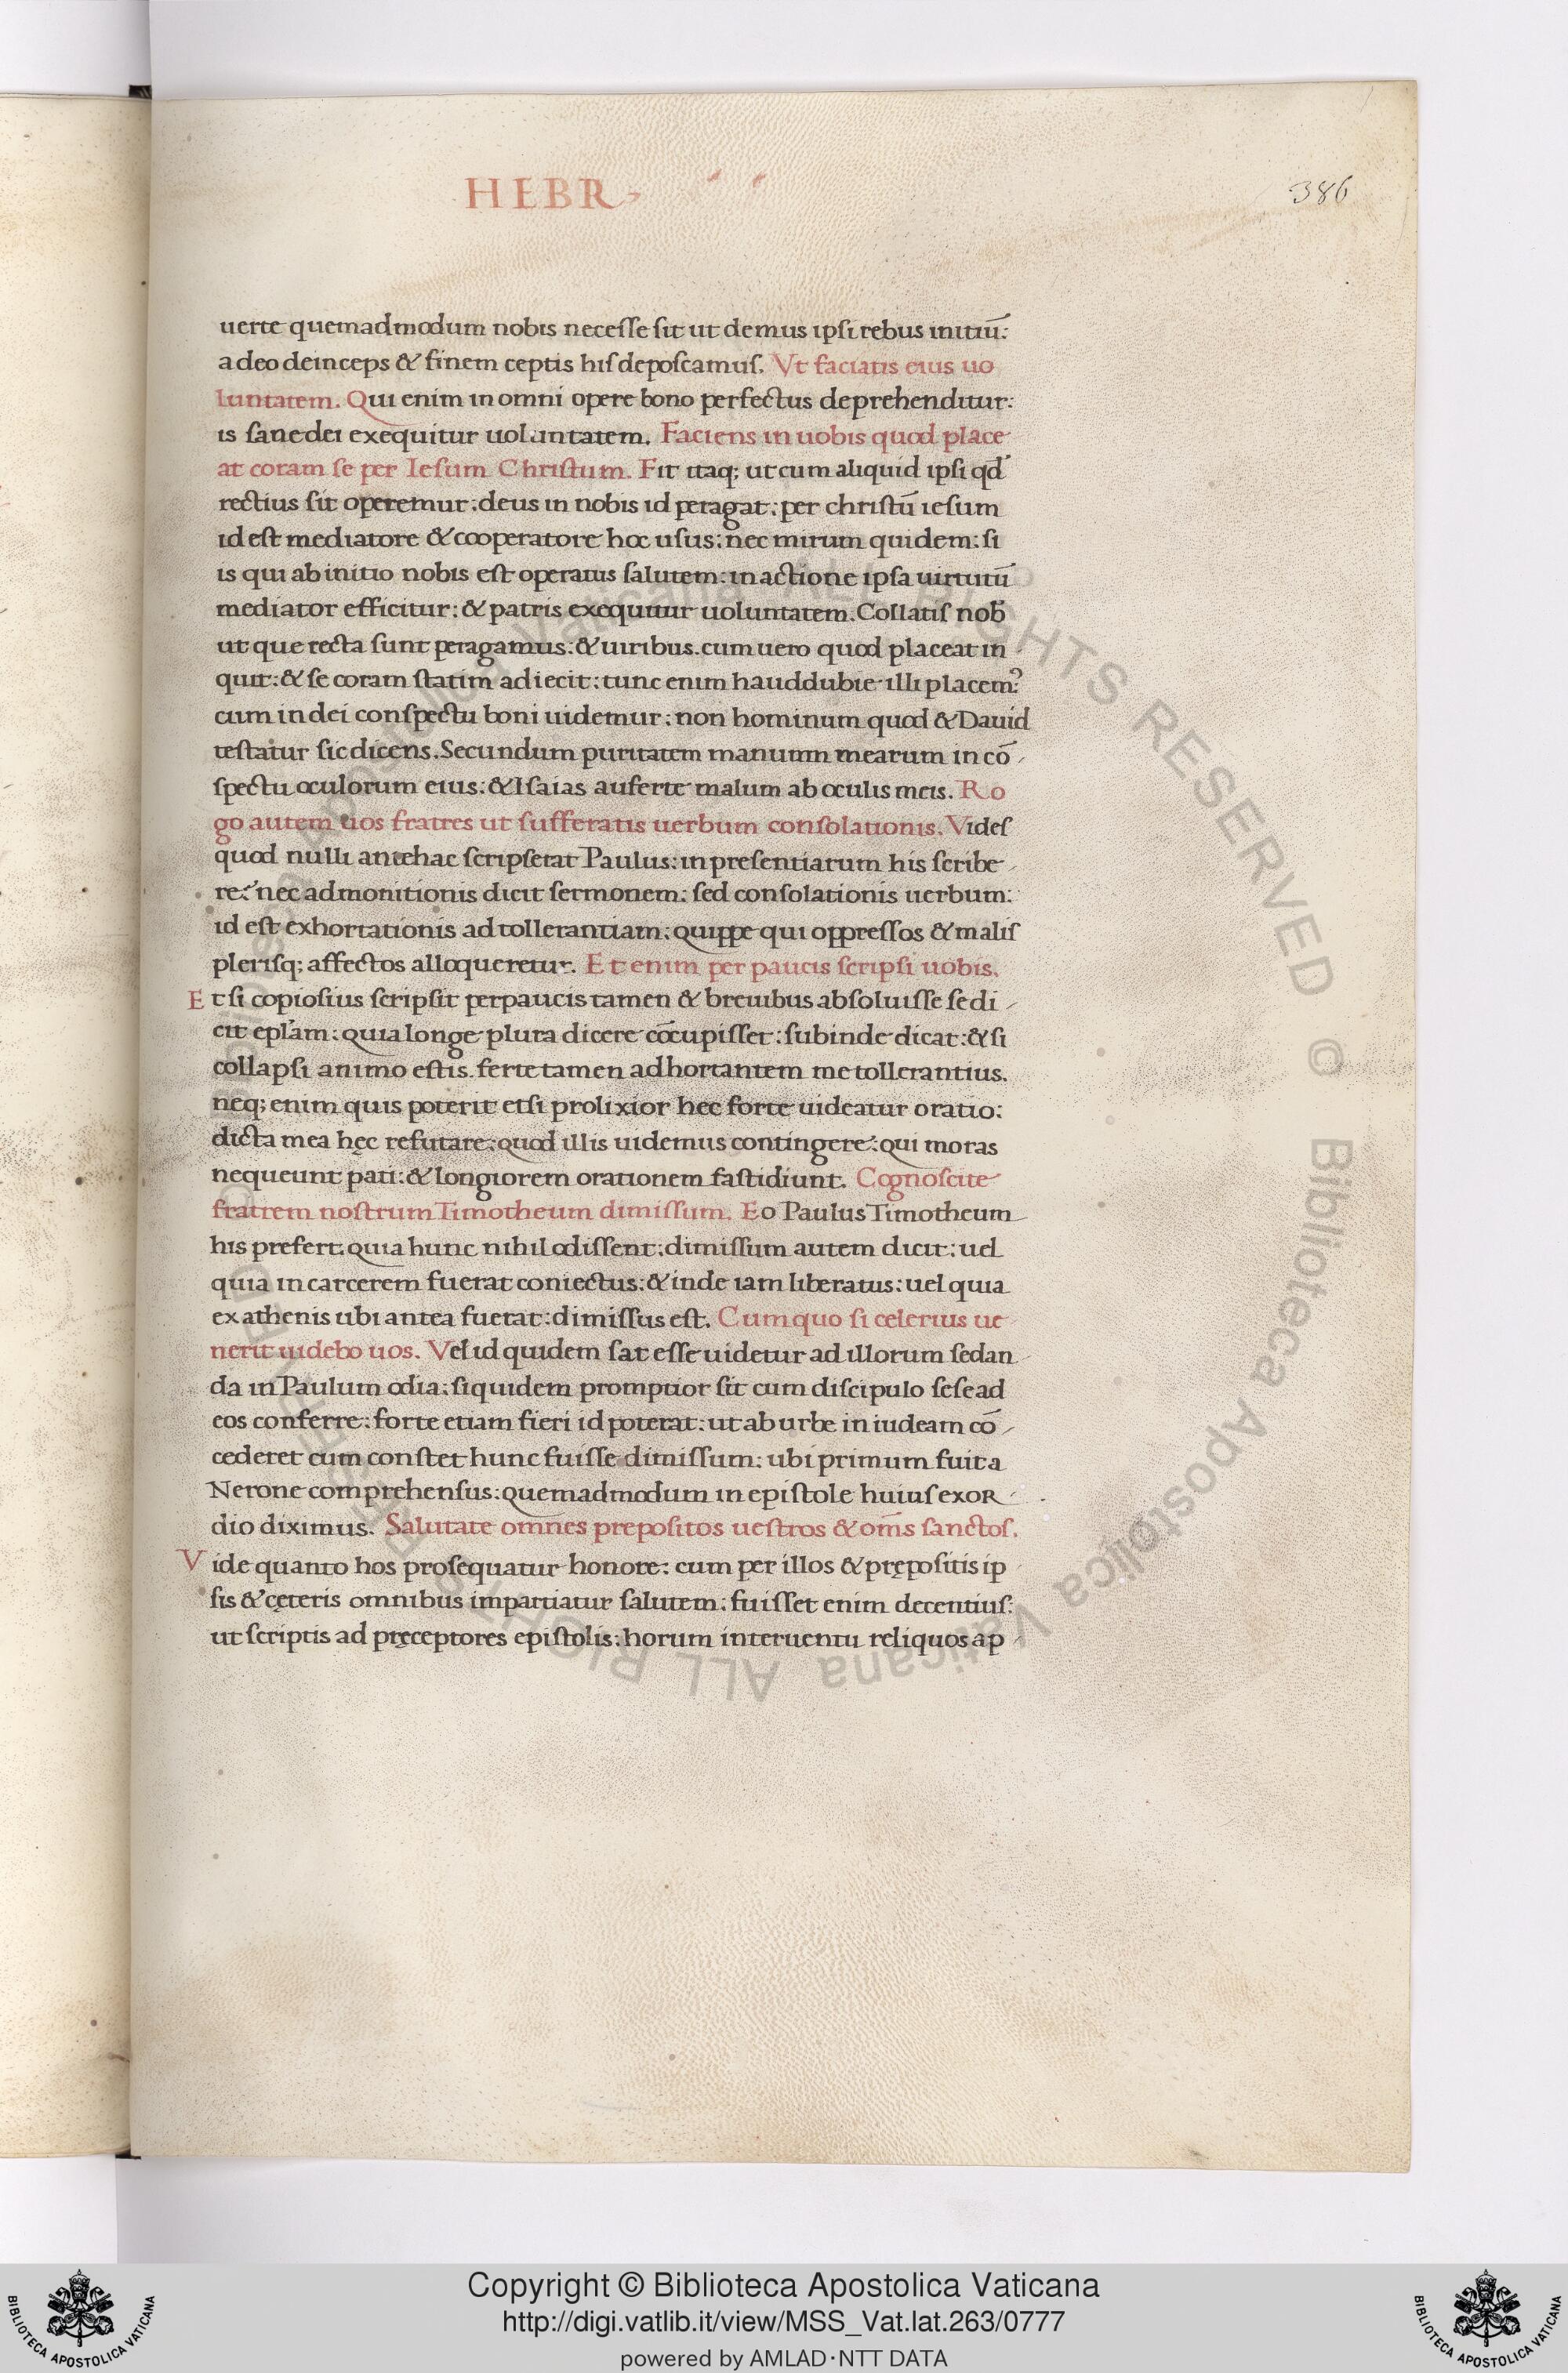 HEBR
386
uerte quemadmodum nobis necesse sit ut demus ipsi rebus initiū:
a deo deinceps & finem ceptis his deposcamus. Vt faciatis eius uo
luntatem. Qui enim in omni opere bono perfectus deprehenditur:
is sane dei exequitur uoluntatem. Faciens in uobis quod place
at coram se per Iesum Christum. Fit itaq; ut cum aliquid ipsi qd̄
rectius sit operemur: deus in nobis id peragat: per christū iesum
id est mediatore & cooperatore hoc usus: nec mirum quidem: si
is qui ab initio nobis est operatus salutem: in actione ipsa uirtutū
mediator efficitur: & patris exequitur uoluntatem. Collatis nob̄
ut que recta sunt peragamus: & uiribus. cum uero quod placeat in
quit: & se coram statim adiecit: tunc enim hauddubie illi placem?
cum in dei conspectu boni uidemur: non hominum quod & Dauid
testatur sic dicens. Secundum puritatem manuum mearum in cō
spectu oculorum eius: & Isaias auferte malum ab oculis meis. Ro
go autem uos fratres ut sufferatis uerbum consolationis. Vides
quod nulli antehac scripserat Paulus: in presentiarum his scribe
re: nec admonitionis dicit sermonem: sed consolationis uerbum:
id est exhortationis ad tollerantiam: quippe qui oppressos & malis
plerisq; affectos alloqueretur. Et enim per paucis scripsi uobis.
Et si copiosius scripsit perpaucis tamen & breuibus absoluisse se di
cit epl̄am: quia longe plura dicere cōcupisset: subinde dicat: & si
collapsi animo estis. ferte tamen adhortantem me tollerantius.
neq; enim quis poterit etsi prolixior hec forte uideatur oratio:
dicta mea hęc refutare: quod illis uidemus contingere: qui moras
nequeunt pati: & longiorem orationem fastidiunt. Cognoscite
fratrem nostrum Timotheum dimissum. Eo Paulus Timotheum
his prefert: quia hunc nihil odissent: dimissum autem dicit: uel
quia in carcerem fuerat coniectus: & inde iam liberatus: uel quia
ex athenis ubi antea fuerat: dimissus est. Cum quo si celerius ue
nerit uidebo uos. Vel id quidem sat esse uidetur ad illorum sedan
da in Paulum odia: siquidem promptior sit cum discipulo sese ad
eos conferre: forte etiam fieri id poterat: ut ab urbe in iudeam cō
cederet cum constet hunc fuisse dimissum: ubi primum fuit a
Nerone comprehensus: quemadmodum in epistole huius exor
dio diximus. Salutate omnes prepositos uestros & om̄s sanctos.
Vide quanto hos prosequatur honore: cum per illos & prępositis ip
sis & cęteris omnibus impartiatur salutem: fuisset enim decentius:
ut scriptis ad pręceptores epistolis: horum interuentu reliquos ap
Biblioteca Apostolica Vaticana ALL RIGHTS RESERVED © Biblioteca Apostolica Vaticana ALL RIGHTS RESERVED ©
Copyright © Biblioteca Apostolica Vaticana
http://digi.vatlib.it/view/MSS_Vat.lat.263/0777
powered by AMLAD·NTT DATA
BIBLIOTECA APOSTOLICA VATICANA
BIBLIOTECA APOSTOLICA VATICANA